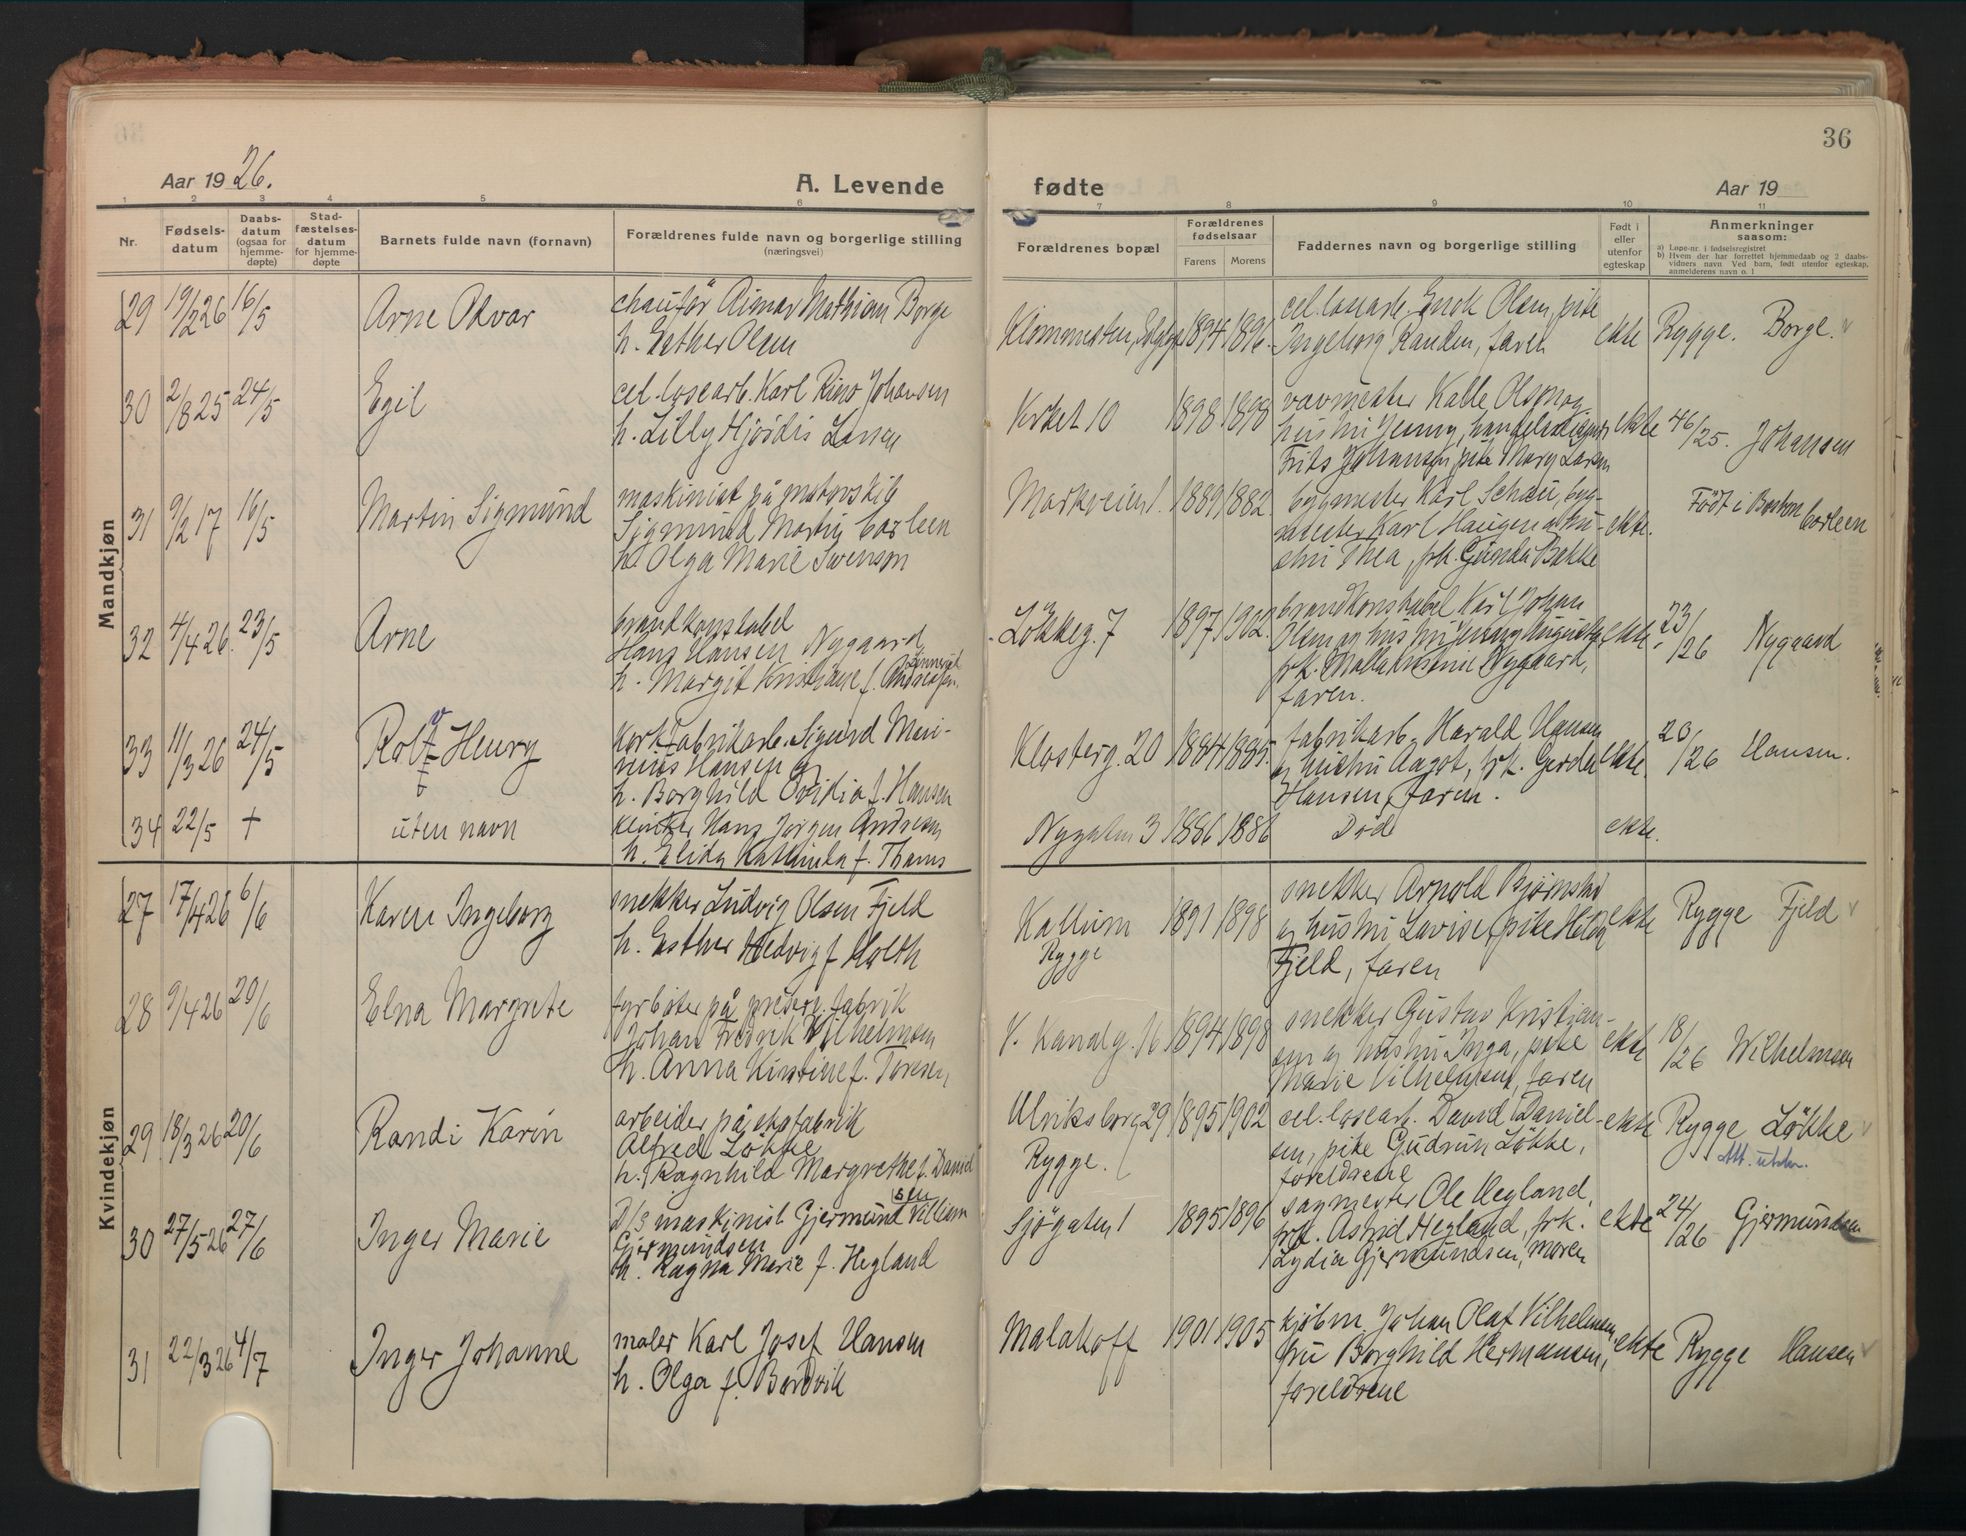 36
Aar 19 26.
A. Levende
fødte
Aar 19
1 2 3 4 5 6 7 8 9 10 11
Nr.
Fødsels-
datum
Daabs-
datum
(ogsaa for
hjemme-
døpte)
Stad-
fæstelses-
datum
for hjemme-
døpte
Barnets fulde navn (fornavn)
Forældrenes fulde navn og borgerlige stilling
(næringsvei)
Forældrenes bopæl
Forældrenes
fødselsaar
Farens Morens
Faddernes navn og borgerlige stilling
Født i
eller
utenfor
egteskap
Anmerkninger
saasom:
a) Løpe-nr. i fødselsregistret
b) Hvem der har forrettet hjemmedaab og 2 daabs-
vidners navn Ved barn, født utenfor egteskap,
anmelderens navn o. l
Mandkjøn
29 19/2 26 16/5
Arne
Mathian Borge
h. Esther Olsen
1894 1896.
Olsen, pike
Ingeborg Randen, faren
ekte Rygge. Borge.
30 2/8 25 24/5
Egil
cel.losearb. Karl Johansen
h. Lilly Hjørdis
10
1898 1898
Kalle Olsen og
hustru Jenny,
Frits Johansen, pike Mary Larsen
ekte 46/25. Johansen
31 9/2 17 16/5
Martin Sigmund
maskinist på motorskib
Sigmund Martin Corleen
h. Olga Marie Svenson
Markveien 1.
1889 1882.
bygmester Karl Schau, byg-
mester Karl Haugen og hu-
stru Thea, frk. Gunda Bakke
ekte.
Født i Boston Corleen
32 4/4 26. 23/5
Arne
brandkonstabel
Hans Hansen Nygaard
h. Margit Kristiane f. Andreasen.
Løkkeg. 7
1897 1902.
brandkonstabel Karl Johan
Olsen og hustru Jenny Augusta,
frk. Nygaard,
faren.
ekte. 23/26 Nygaard
33 11/3 26 24/5
Rolf Henry
v
Korkfabrikarb. Sigurd Mari-
nius Hansen og
h. Borghild Ovidia f. Hansen
Klosterg. 20
1884 1885.
fabrikarb. Harald Hansen
og hustru Aagot, frk. Gerda
Hansen, faren.
ekte. 20/26 Hansen.
34 22/5 +
uten navn
Hans Jørgen Andresen
h. Elida f. Thams
3
1886 1886
Død
ekte.
Kvindekjøn
27 17/4 26 6/6
Karen Ingeborg
snekker Ludvig Olsen Fjeld
h. Esther Hedvig f. Holth
Kallum
Rygge
1891 1898
snekker Arnold Bjørnstad
og hustru Lovise, pike Hilda
Fjeld, faren
ekte Rygge Fjeld
28 9/4 26 20/6
Elna Margrete
fyrbøter på preserv. fabrik
Johan Fredrik Vilhelmsen
h. Anna Kirstine f. Toresen
V. Kanalg. 16
1894 1898
snekker Gustav Kristian-
sen og hustru Inga, pike
Marie Vilhelmsen, faren
ekte 18/26 Wilhelmsen
29 18/3 26 20/6
Randi Karin
arbeider på skofabrik
Alfred Løkke
h. Ragnhild Margrethe f. Daniel
sen
Ulriksborg 29
Rygge.
1895 1902
cel.losearb. David Daniel-
sen, pike Gudrun Løkke,
foreldrene
ekte Rygge Løkke
Att. utst.
30 27/5 26 27/6
Inger Marie
D/S maskinist Gjermund Villiam
Gjermundsen
h. Ragna Marie f. Hegland
Sjøgaten 1
1895 1896
sagmester Ole Hegland,
frk. Astrid Hegland, frk.
Lydia Gjermundsen, moren
ekte 24/26 Gjermundsen
31 22/3 26 4/7
Inger Johanne
maler Karl Josef Hansen
h. Olga f. Bordvik
Malakoff
1901 1905
kjøbm. Johan Olaf Vilhelmsen,
fru Borghild Hermansen,
foreldrene
ekte Rygge Hansen